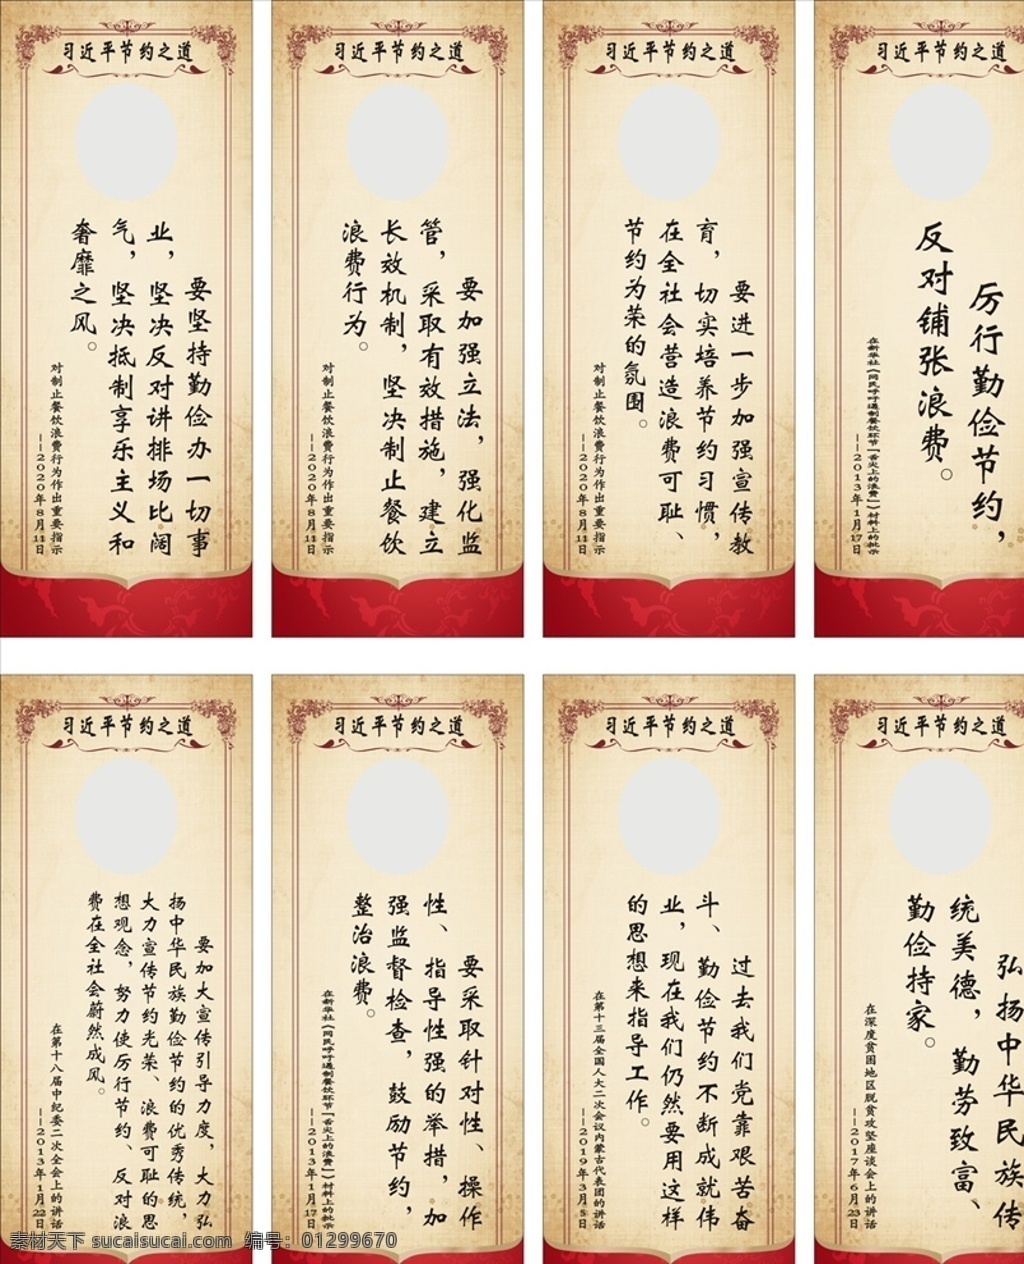 习近平节约之道
要坚持勤俭办一切事
业，坚决反对讲排场比阔
气，坚决抵制享乐主义和
奢靡之风。
对制止餐饮浪费行为作出重要指示
——2020年8月11日
习近平节约之道
要加强立法，强化监
管，采取有效措施，建立
长效机制，坚决制止餐饮
浪费行为。
对制止餐饮浪费行为作出重要指示
——2020年8月11日
习近平节约之道
要进一步加强宣传教
育，切实培养节约习惯，
在全社会营造浪费可耻、
节约为荣的氛围。
对制止餐饮浪费行为作出重要指示
——2020年8月11日
习近平节约之道
厉行勤俭节约，
反对铺张浪费。
在新华社《网民呼吁遏制餐饮环节“舌尖上的浪费”》材料上的批示
——2013年1月17日
习近平节约之道
要加大宣传引导力度，大力弘
扬中华民族勤俭节约的优秀传统，
大力宣传节约光荣、浪费可耻的思
想观念，努力使厉行节约、反对浪
费在全社会蔚然成风。
在第十八届中纪委二次全会上的讲话
——2013年1月22日
习近平节约之道
要采取针对性、操作
性、指导性强的举措，加
强监督检查，鼓励节约，
整治浪费。
在新华社《网民呼吁遏制餐饮环节“舌尖上的浪费”》材料上的批示
——2013年1月17日
习近平节约之道
过去我们党靠艰苦奋
斗、勤俭节约不断成就伟
业，现在我们仍然要用这样
的思想来指导工作。
在第十三届全国人大二次会议内蒙古代表团的讲话
——2019年3月5日
习近平节约之道
弘扬中华民族传
统美德，勤劳致富、
勤俭持家。
在深度贫困地区脱贫攻坚座谈会上的讲话
——2017年6月23日
素材天下 sucaisucai.com 编号：01299670